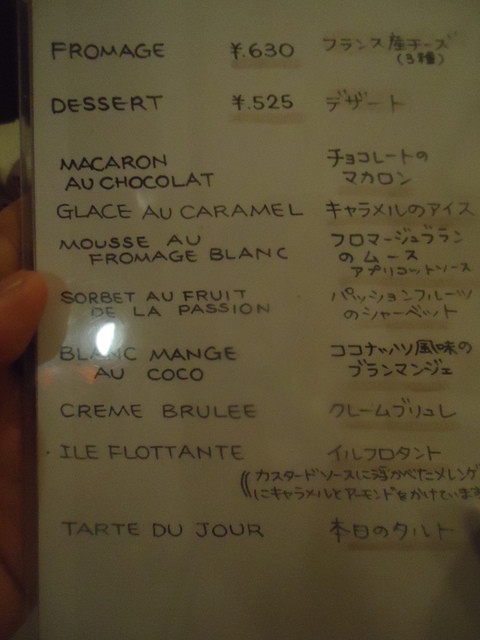 FROMAGE ¥.630 フランス産チーズ
(3種)
DESSERT ¥.525 デザート
MACARON チョコレートの
AU CHOCOLAT マカロン
GLACE AU CARAMEL キャラメルのアイス
MOUSSE AU フロマージュブラン
FROMAGE BLANC のムース
アプリコットソース
SORBET AU FRUIT パッションフルーツ
DE LA PASSION のシャーベット
BLANC MANGE ココナッツ風味の
AU COCO ブランマンジェ
CREME BRULEE クレームブリュレ
ILE FLOTTANTE イルフロタント
(カスタードソースに浮かべたメレンゲ
にキャラメルとアーモンドをかけています
TARTE DU JOUR 本日のタルト